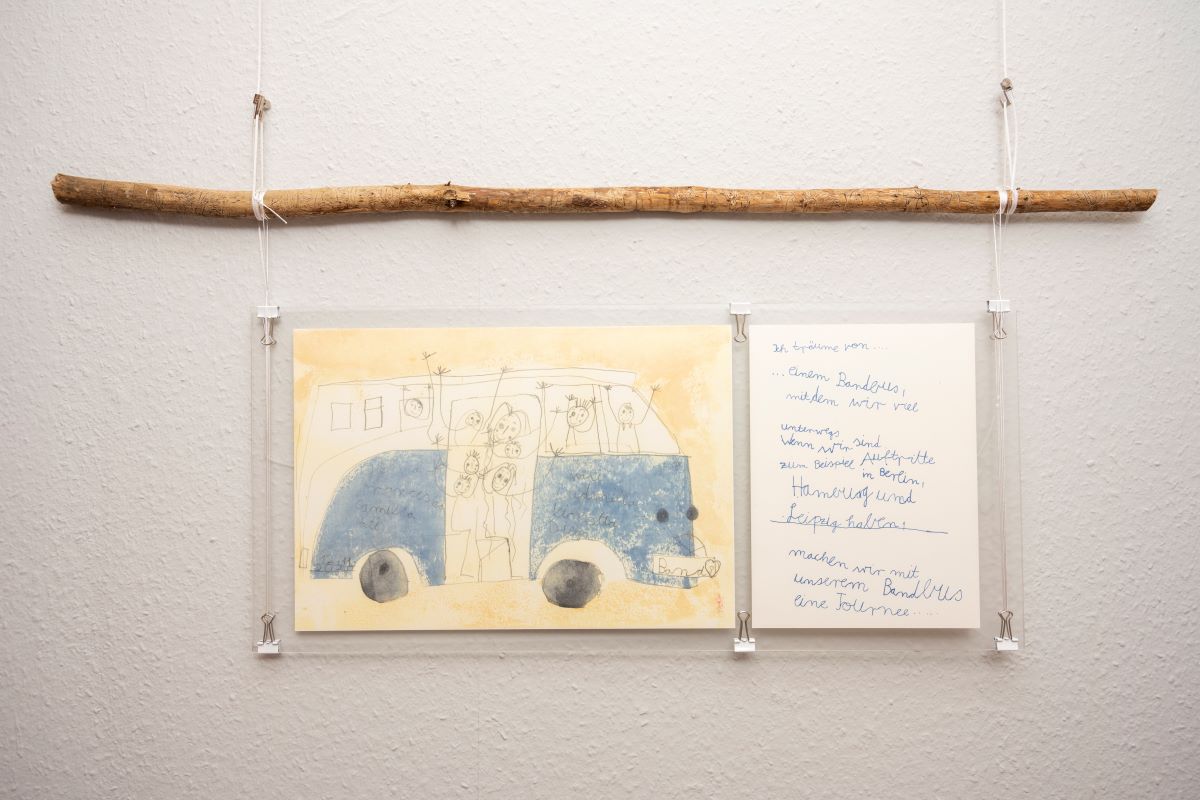 Ich träume von....
...einem Bandbus,
mit dem wir viel
unterwegs
Wenn wir sind
zum Beispiel Auftritte
in Berlin,
Hamburg und
Leipzig haben!
machen wir mit
unserem Bandbus
eine Tournee.....
Band